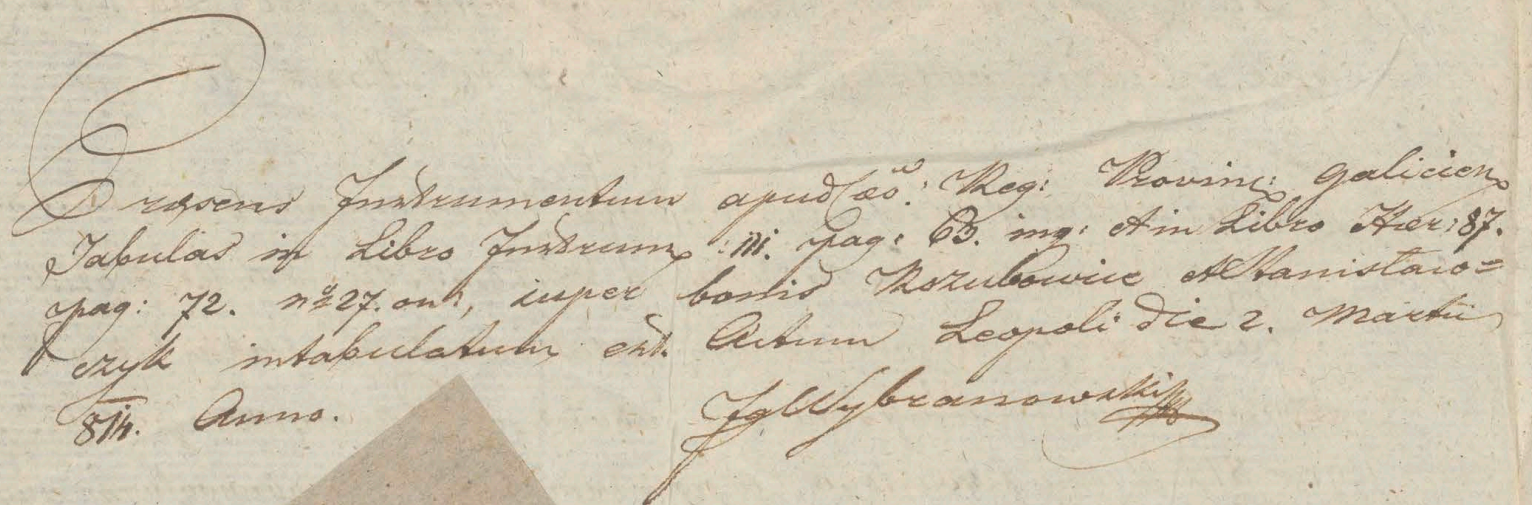 Præsens Instrumentum apud Cæs: Reg: Provinc: Galicien
Tabulas in Libro Instrum: 111. pag: 63. ing: et in Libro Hær: 87.
pag: 72. no 27. on:, super bonis Kozubowice et Stanisławo=
czyk intabulatum est. Actum Leopoli die 2. Martii
814. Anno.
Ig Wybranowski